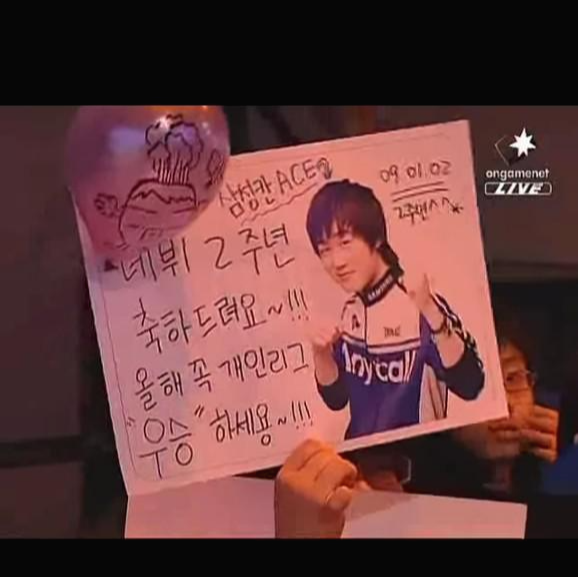 삼성칸 ACE
09.01.02
2주년^^*
데뷔 2주년
축하드려요~!!!
올해 꼭 개인리그
"우승" 하세용~!!!
SAMSUNG
Anycall
ongamenet
LIVE